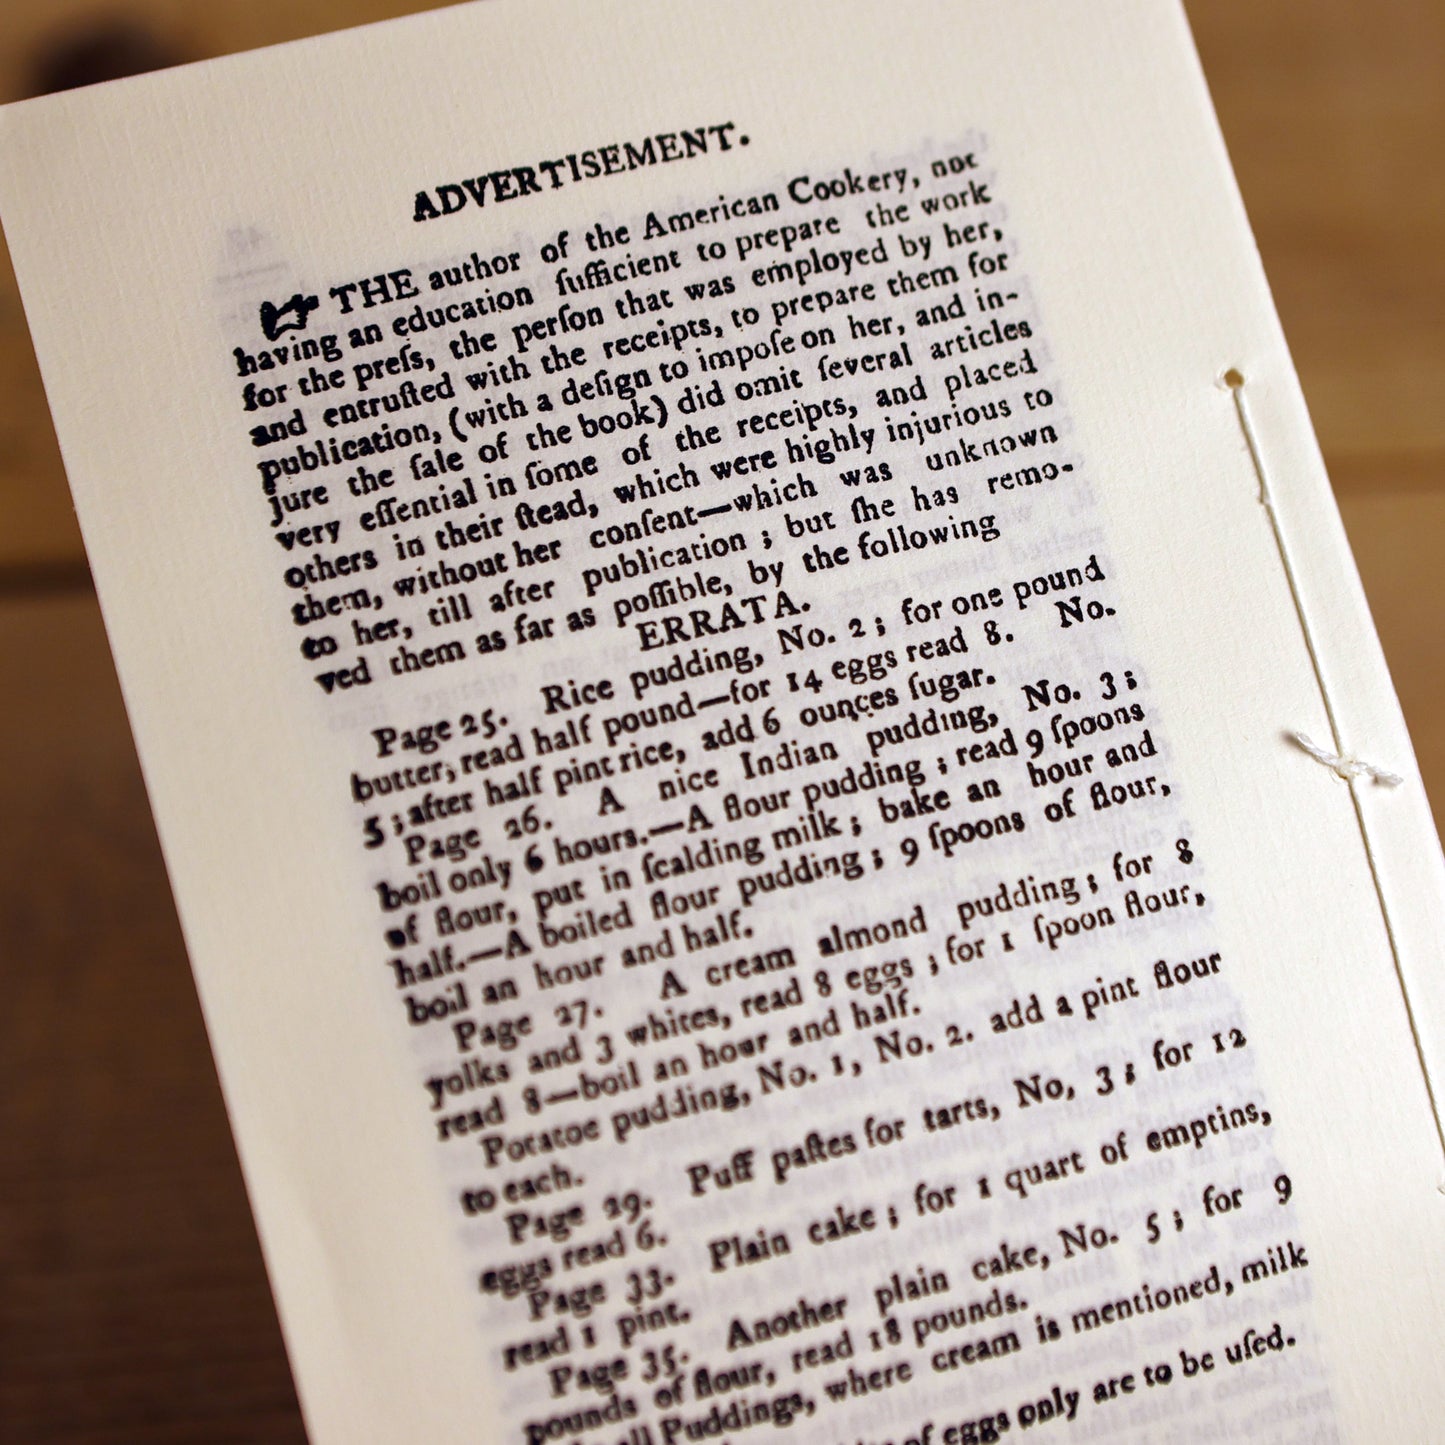 ADVERTISEMENT.
☞ THE author of the American Cookery, not
having an education ſufficient to prepare the work
for the preſs, the perſon that was employed by her,
and entruſted with the receipts, to prepare them for
publication, (with a deſign to impoſe on her, and in-
jure the ſale of the book) did omit ſeveral articles
very eſſential in ſome of the receipts, and placed
others in their ſtead, which were highly injurious to
them, without her conſent—which was unknown
to her, till after publication ; but ſhe has remo-
ved them as far as poſſible, by the following
ERRATA.
Page 25. Rice pudding, No. 2 ; for one pound
butter, read half pound—for 14 eggs read 8. No.
5 ; after half pint rice, add 6 ounces ſugar.
Page 26. A nice Indian pudding, No. 3 ;
boil only 6 hours.—A flour pudding ; read 9 ſpoons
of flour, put in ſcalding milk ; bake an hour and
half.—A boiled flour pudding ; 9 ſpoons of flour,
boil an hour and half.
Page 27. A cream almond pudding ; for 8
yolks and 3 whites, read 8 eggs ; for 1 ſpoon flour,
read 8—boil an hour and half.
Potatoe pudding, No. 1, No. 2. add a pint flour
to each.
Page 29. Puff paſtes for tarts, No, 3 ; for 12
eggs read 6.
Page 33. Plain cake ; for 1 quart of emptins,
read 1 pint.
Page 35. Another plain cake, No. 5 ; for 9
pounds of flour, read 18 pounds.
all Puddings, where cream is mentioned, milk
of eggs only are to be uſed.